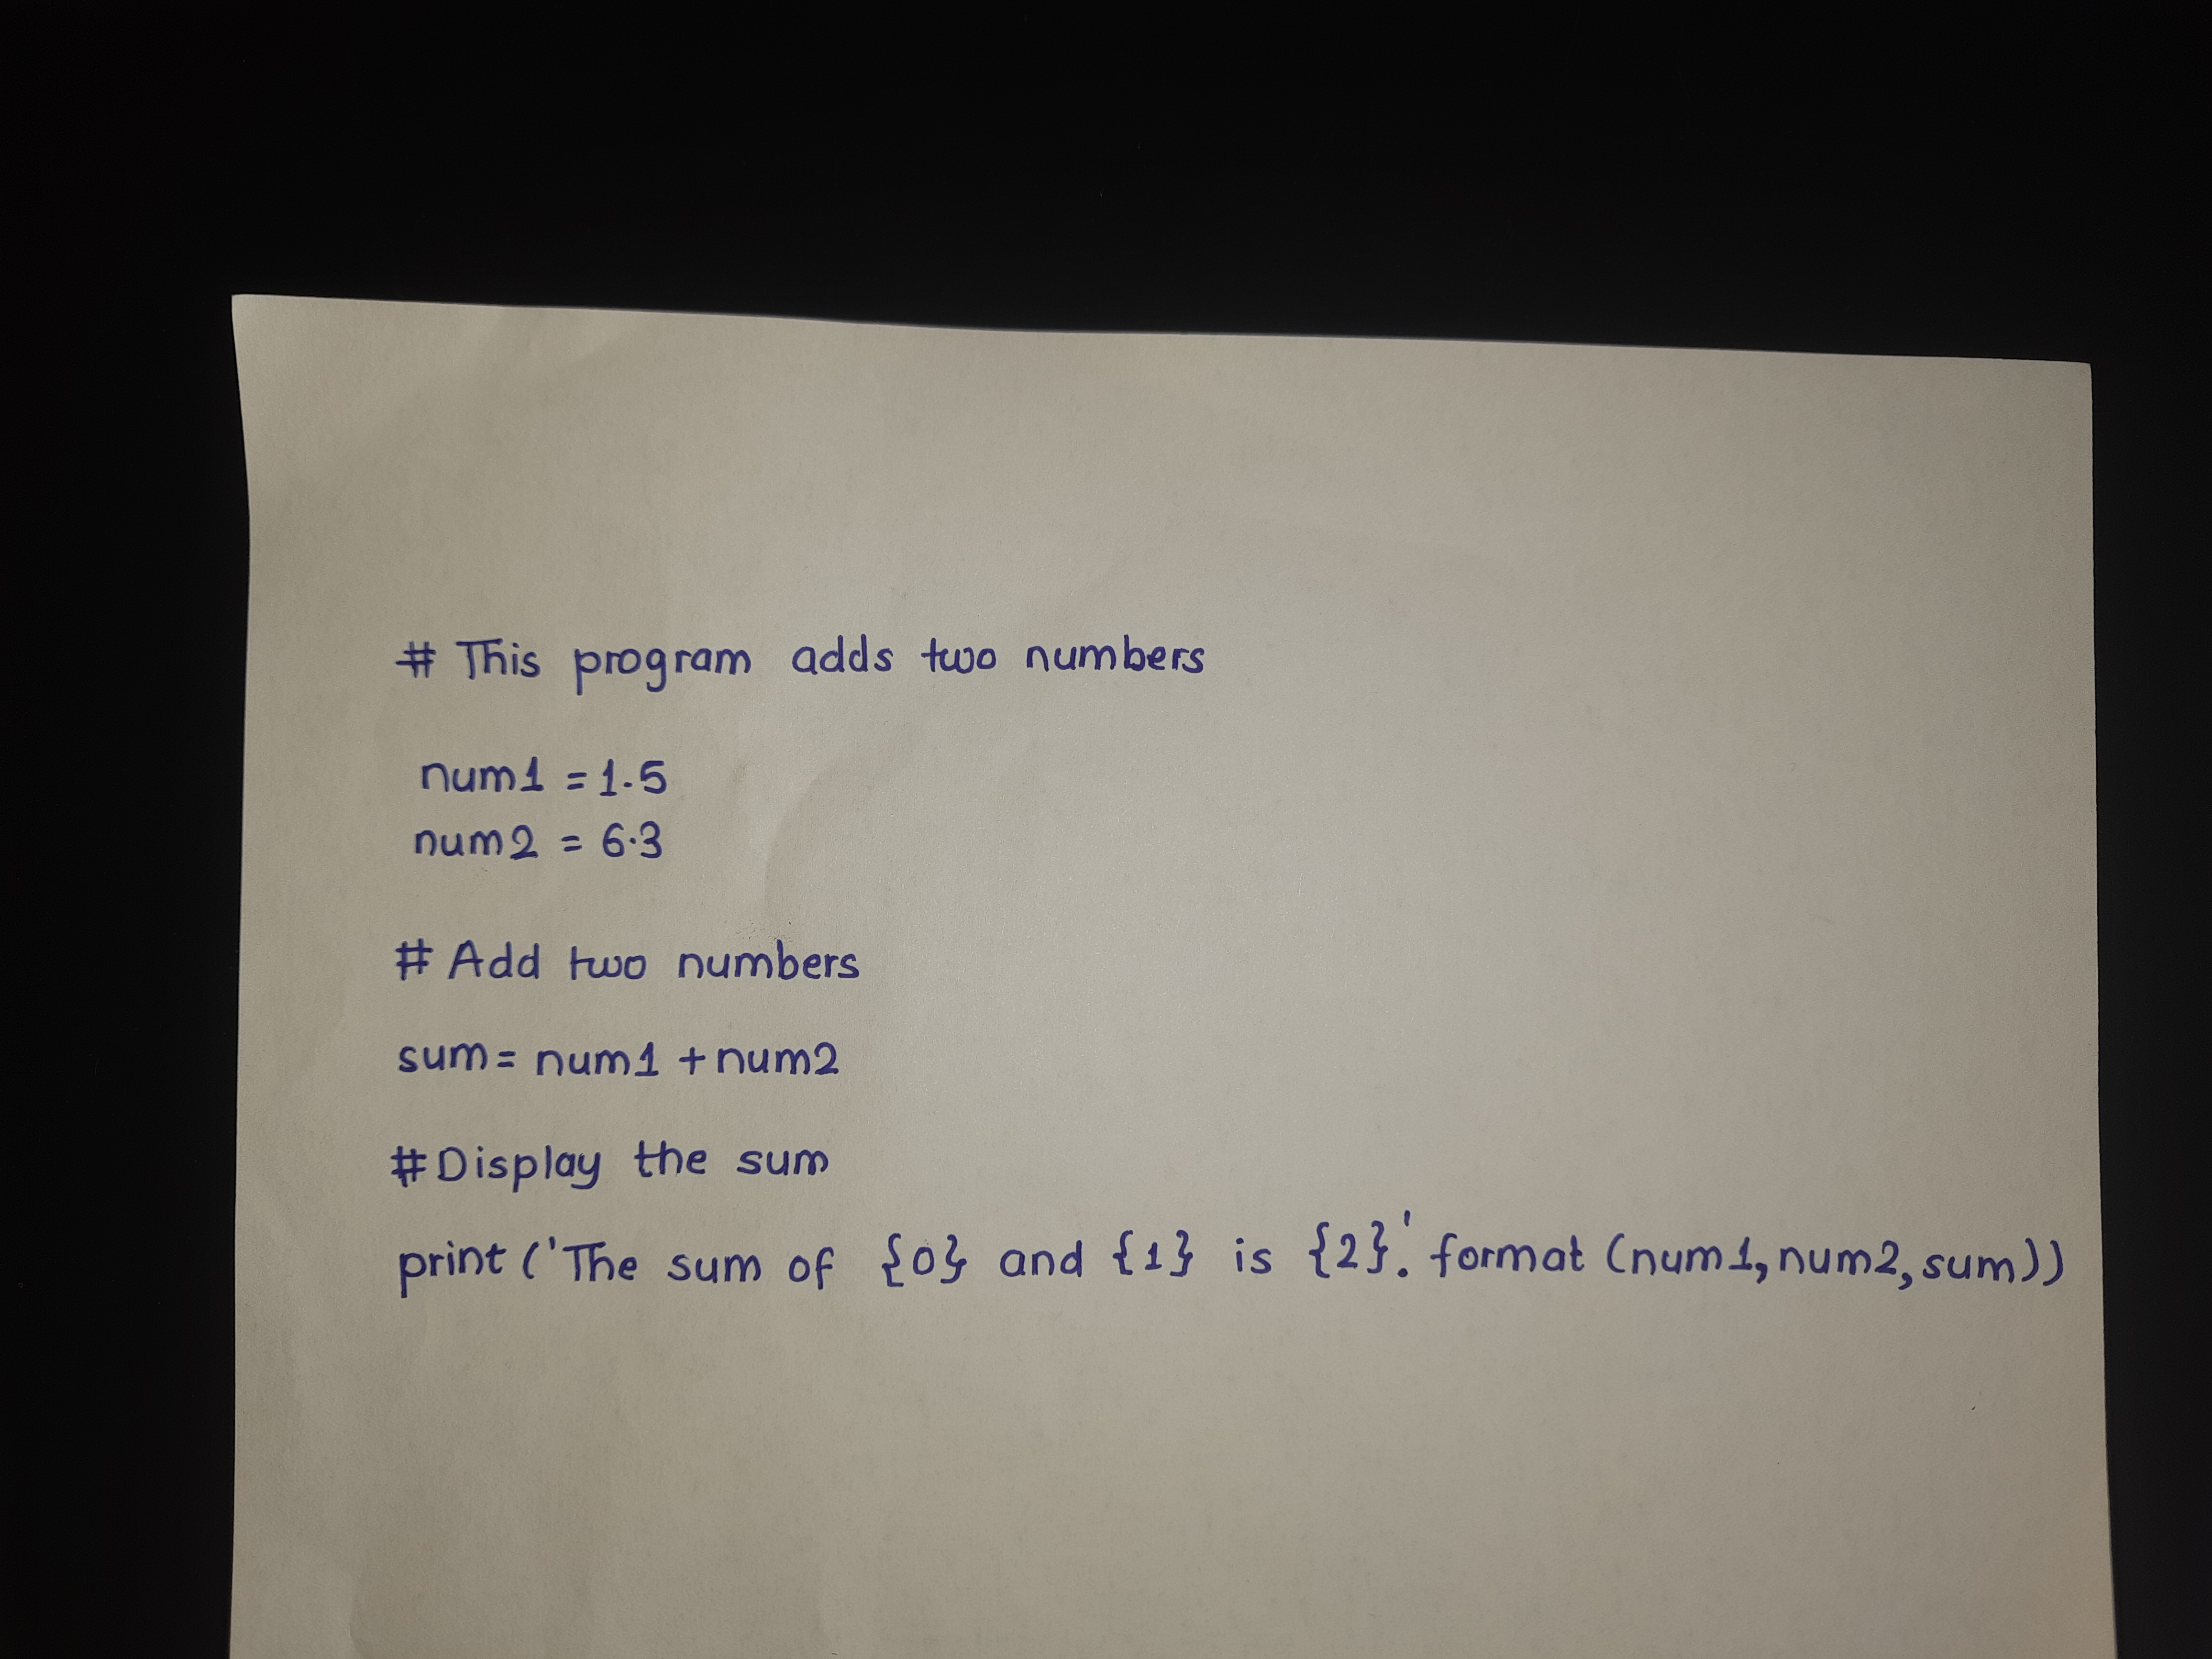 # This program adds two numbers
num1 = 1.5
num2 = 6.3
# Add two numbers
sum = num1 + num2
#Display the sum
print ('The sum of {0} and {1} is {2}'. format (num1, num2, sum))